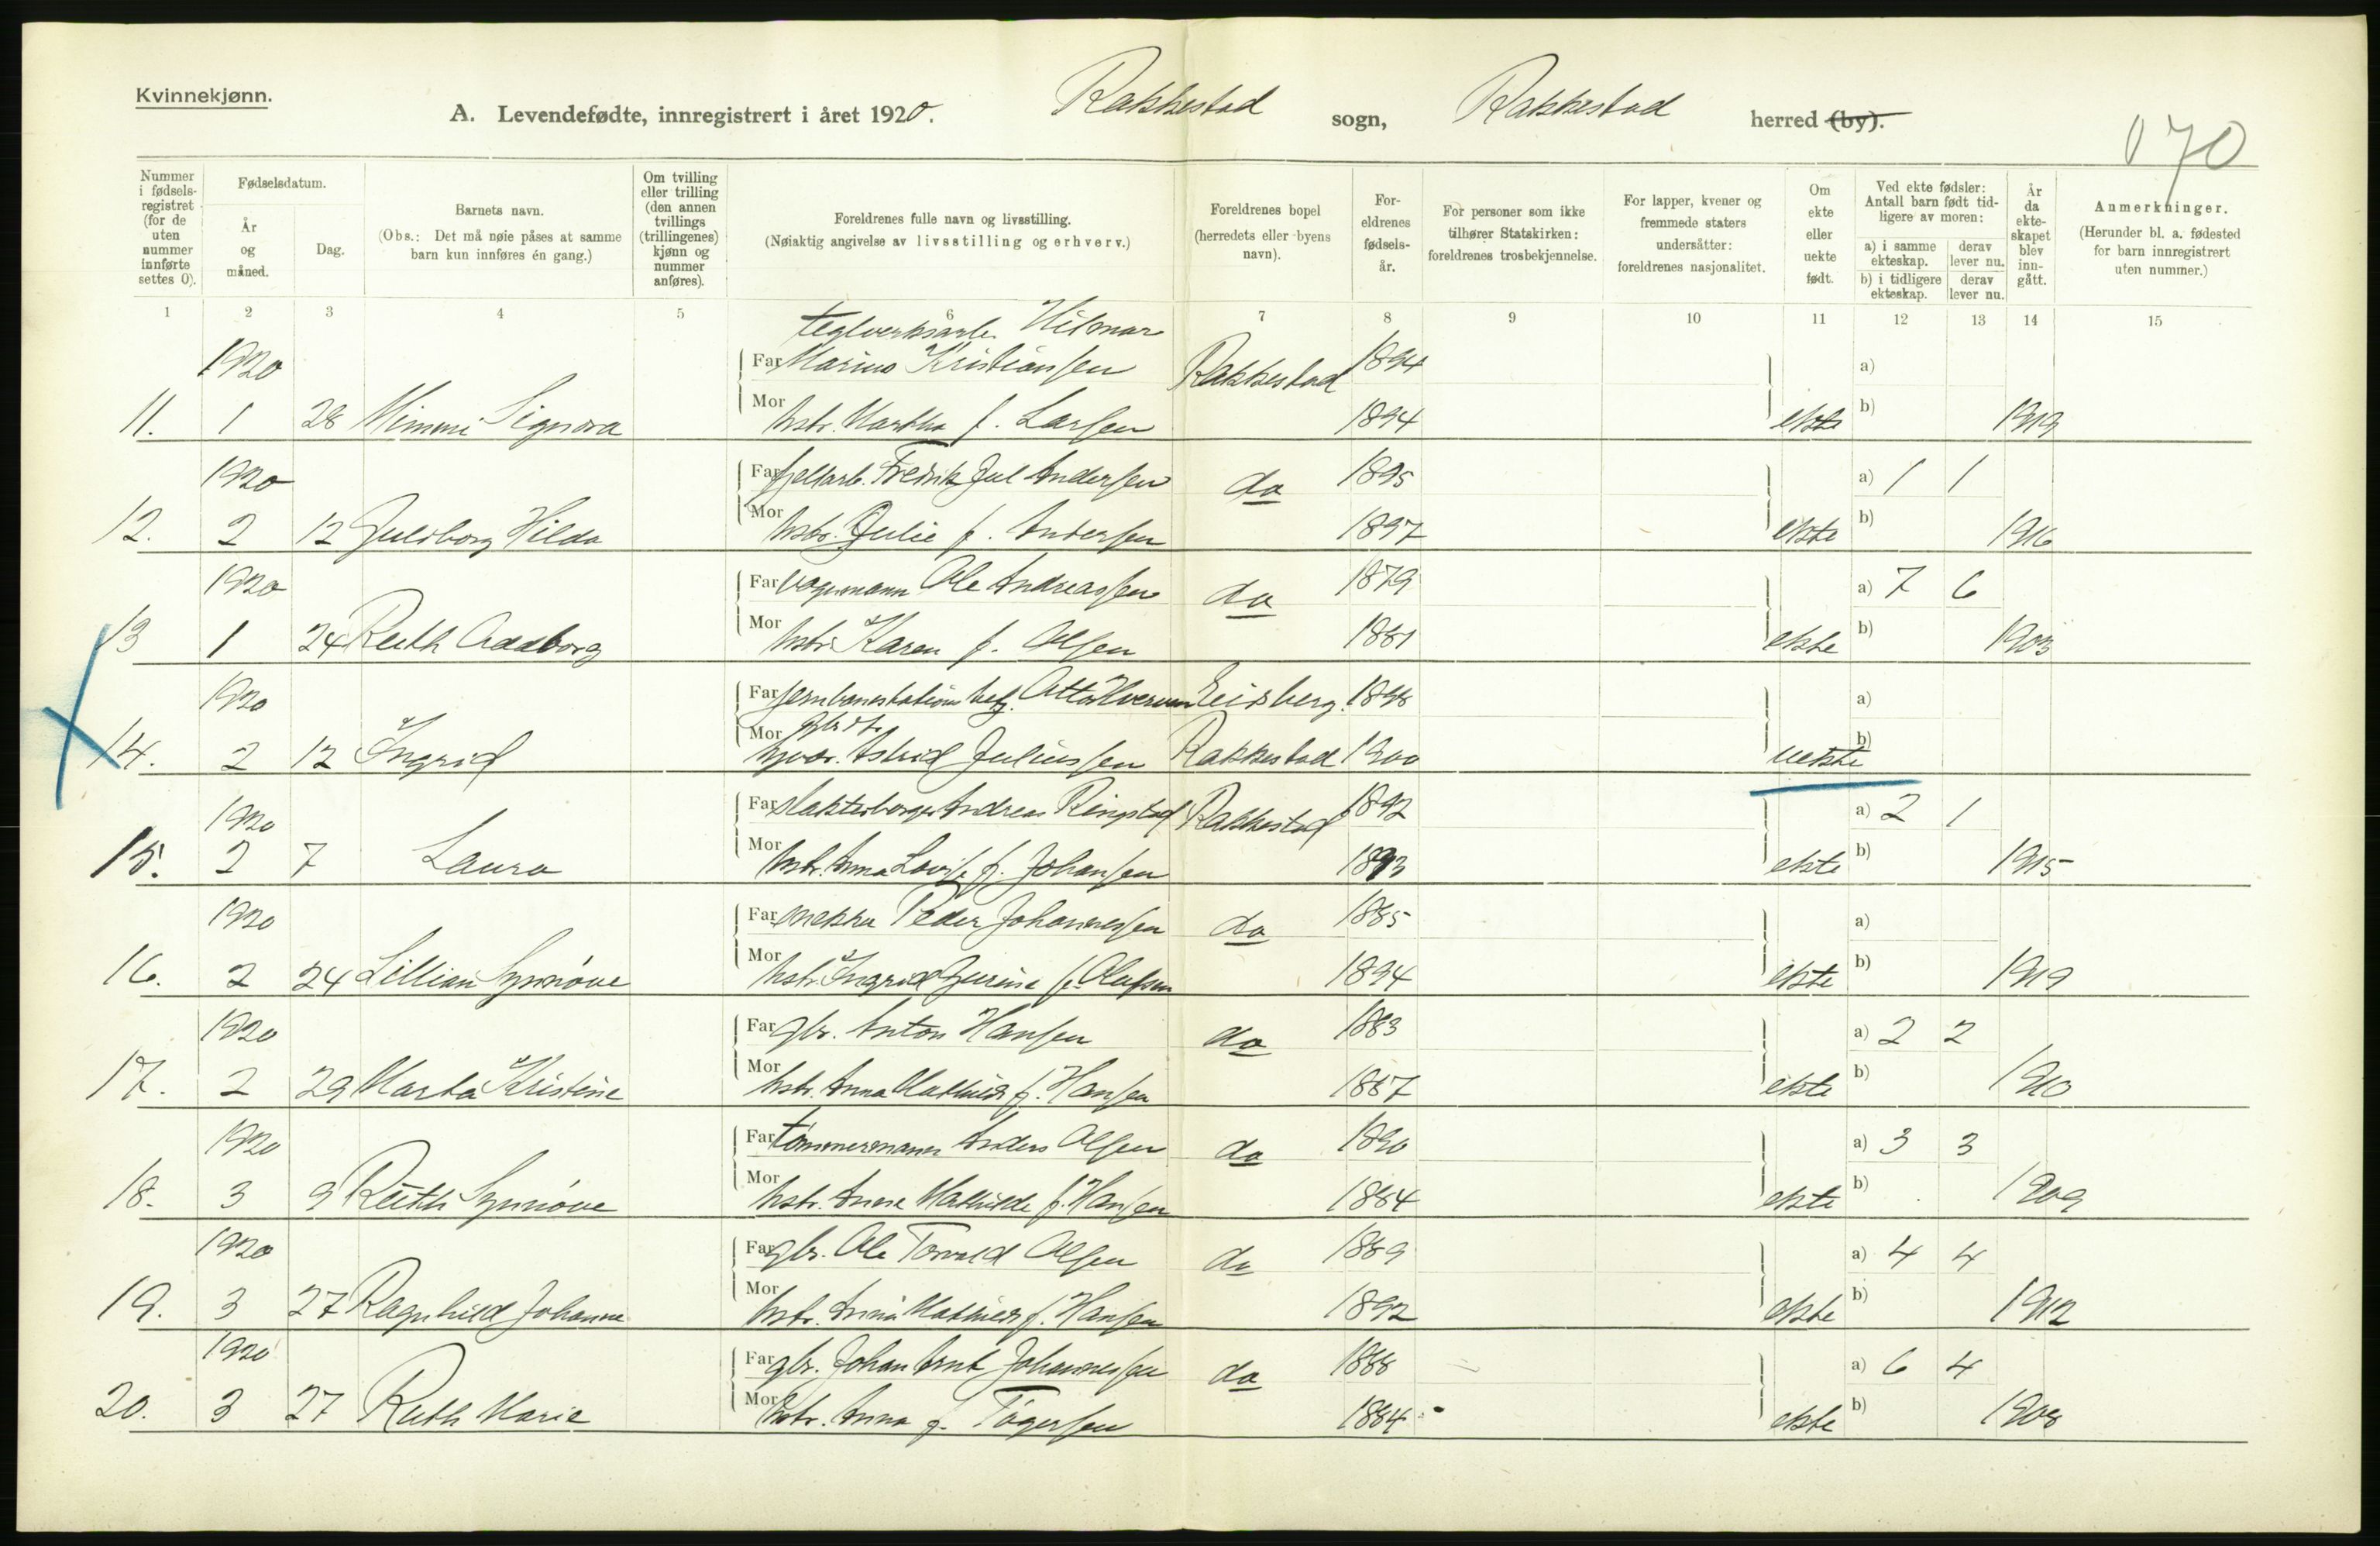 Kvinnekjønn.
A. Levendefødte, innregistrert i året 1920. Rakkestad sogn, Rakkestad herred (by).
170
Nummer i fødselsregistret (for de uten nummer innførte settes 0).
Fødselsdatum.
År og måned.
Dag.
Barnets navn.
(Obs.: Det må nøie påses at samme barn kun innføres én gang.)
Om tvilling eller trilling (den annen tvillings (trillingenes) kjønn og nummer anføres).
Foreldrenes fulle navn og livsstilling.
(Nøiaktig angivelse av livsstilling og erhverv.)
Foreldrenes bopel (herredets eller byens navn).
Foreldrenes fødselsår.
For personer som ikke tilhører Statskirken: foreldrenes trosbekjennelse.
For lapper, kvener og fremmede staters undersåtter: foreldrenes nasjonalitet.
Om ekte eller uekte født.
Ved ekte fødsler: Antall barn født tidligere av moren:
a) i samme ekteskap. derav lever nu.
b) i tidligere ekteskap. derav lever nu.
År da ekteskapet blev inngått.
Anmerkninger.
(Herunder bl. a. fødested for barn innregistrert uten nummer.)
1 2 3 4 5 6 7 8 9 10 11 12 13 14 15
teglverksarb. Hilmar
1920 Far Marius Kristiansen Rakkestad 1894 a)
11. 1 28 Mimmi Signora Mor hstr. Martha f. Larsen 1894 ekte b) 1919
1920 Far fjellarb. Fredrik Jul Andersen do 1895 a) 1 1
12. 2 12 Julsborg Hilda Mor hstr. Julie f. Andersen 1897 ekte b) 1916
1920 Far vognmann Ole Andreassen do 1879 a) 7 6
13 1 24 Ruth Aadborg Mor hstr. Karen f. Olsen 1881 ekte b) 1903
1920 Far jernbanestation betj. Otto Eidsberg. 1898 a)
14. 2 12 Ingrid Mor Astrid Juliussen Rakkestad 1900 uekte b)
1920 Far Andreas Ringstad Rakkestad 1892 a) 2 1
15. 2 7 Laura Mor hstr. Anna Lovise f. Johansen 1893 ekte b) 1915
1920 Far snekker Peder Johannessen do 1885 a)
16. 2 24 Lillian Synnöve Mor hstr. Ingrid Jurine f. Olufsen 1894 ekte b) 1919
1920 Far gbr. Anton Hansen do 1883 a) 2 2
17. 2 29 Marta Kristine Mor hstr. Anna Mathilde f. Hansen 1887 ekte b) 1910
1920 Far tömmermann Anders Olsen do 1890 a) 3 3
18. 3 9 Ruth Synnöve Mor hstr. Anne Mathilde f. Hansen 1884 ekte b) 1909
1920 Far gbr. Ole Torvald Olsen do 1889 a) 4 4
19. 3 27 Ragnhild Johanne Mor hstr. Anna Mathilde f. Hansen 1892 ekte b) 1912
1920 Far gbr. Johan Arnt Johannessen do 1888 a) 6 4
20. 3 27 Ruth Marie Mor hstr. Anna f. Tögersen 1884 ekte b) 1908